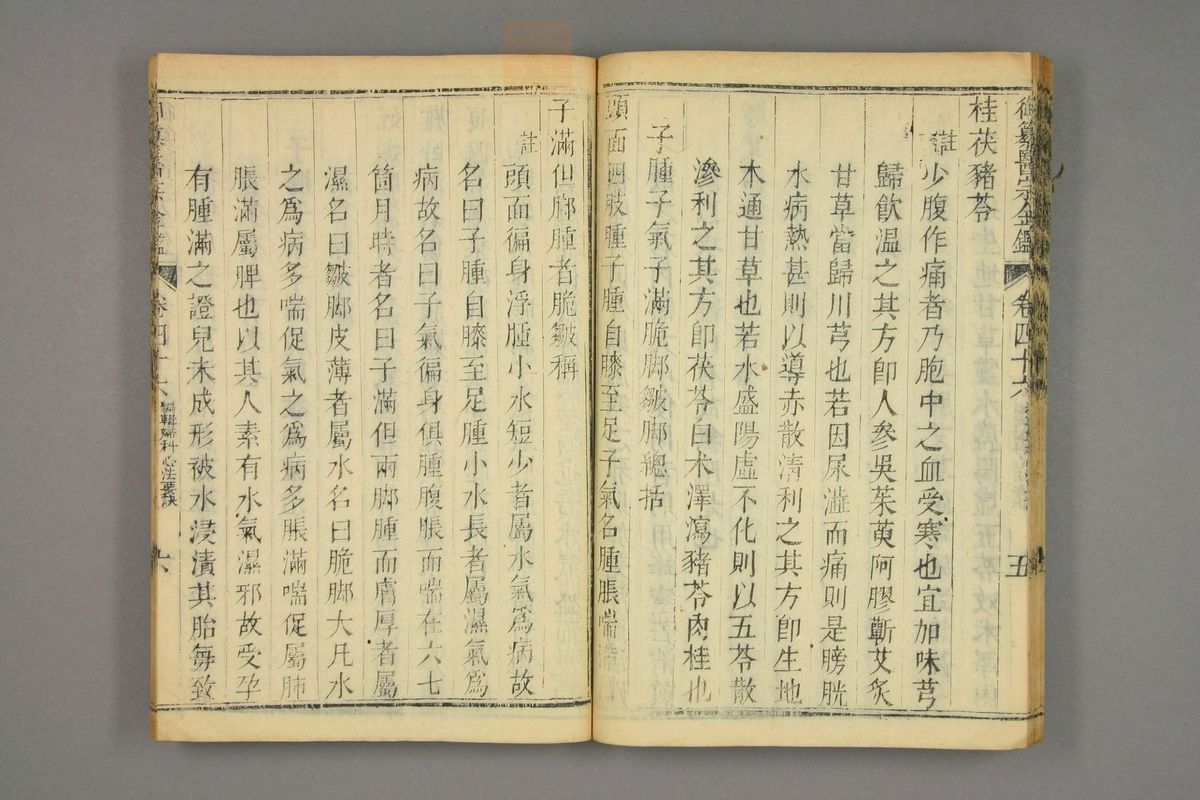 御纂醫宗金鑑 卷四十六 五
桂茯豬苓
註少腹作痛者乃胞中之血受寒也宜加味芎
歸飲溫之其方卽人參吳茱萸阿膠蘄艾炙
甘草當歸川芎也若因尿澁而痛則是膀胱
水病熱甚則以導赤散清利之其方卽生地
木通甘草也若水盛陽虛不化則以五苓散
滲利之其方卽茯苓白术澤瀉豬苓肉桂也
子腫子氣子滿脆脚皺脚總括
頭面四肢腫子腫自膝至足子氣名腫脹喘滿
子滿但脚腫者脆皺稱
註頭面徧身浮腫小水短少者屬水氣爲病故
名曰子腫自膝至足腫小水長者屬濕氣爲
病故名曰子氣徧身俱腫腹脹而喘在六七
箇月時者名曰子滿但兩脚腫而膚厚者屬
濕名曰皺脚皮薄者屬水名曰脆脚大凡水
之爲病多喘促氣之爲病多脹滿喘促屬肺
脹滿屬脾也以其人素有水氣濕邪故受孕
有腫滿之證兒未成形被水浸漬其胎每致
卷四十六 編輯婦科心法要訣 六